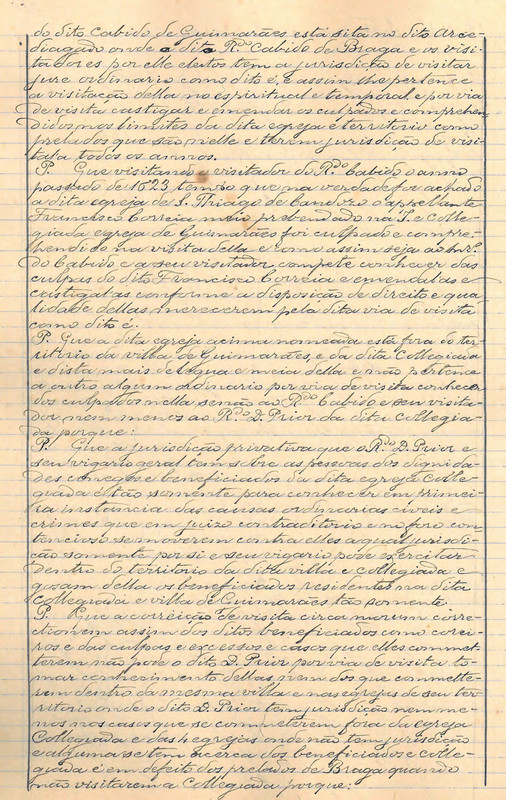 do dito Cabido de Guimarães está sita no dito Arce-
diagado onde o dito R.do Cabido de Braga e os visi-
tadores por elle eleitos tem a jurisdicão de visitar
jure ordinario como dito é, e assim lhe pertence
a visitação della no espiritual e temporal e por via
de visita castigar e emendar os culpados e comprehen-
didos nos limites da dita egreja e territorio como
prelados que são nelle e terem jurisdicão de visi-
tala todos os annos.
P. Que visitando o visitador do R.do Cabido o anno
passado de 1623 tem so que na verdade for achado
a dita egreja de S. Thiago de Candoso o apelante
Francisco Correia meio prebendado na I. e Colle-
giada egreja de Guimarães foi culpado e compre-
hendido na visita della e como assim seja ao
do Cabido e a seu visitador compete conhecer das
culpas do dito Francisco Correia e emendalas e
castigalas conforme a disposição de direito e qua-
lidade dellas merecerem pela dita via de visita
como dito é.
P. Que a dita egreja acima nomeada está fora do ter-
ritorio da villa de Guimarães, e da dita Collegiada
e dista mais de legua e meia della e não pertence
a outro algum ordinario por via de visita conhecer
dos culpados nella senão ao R.do Cabido e seu visita-
dor nem menos ao R.do D. Prior da dita collegia-
da porque:
P. Que a jurisdição privativa que o R.do D. Prior e
seu vigario geral tem sobre as pessoas dos dignida-
des conegos e beneficiados da dita egreja Colle-
giada é tão somente para conhecer em primei-
ra instancia das causas ordinarias civeis e
crimes que em juizo contraditorio e no foro con-
tencioso se moverem contra elles a qual jurisdi-
cão somente por si e seu vigario pode exercitar
dentro do territorio da dita villa e collegiada e
gosam della os beneficiados residentes na dita
Collegiada e villa de Guimarães tão somente.
P. Que a correição de visita circa morum corre-
ctionem assim dos ditos beneficiados como corei-
ros e das culpas e excessos e casos que elles commet-
terem não pode o dito D. Prior por via de visita to-
mar conhecimento dellas nem dos que commette-
rem dentro da mesma villa e nas egrejas do seu ter-
ritorio onde o dito D. Prior tem jurisdição nem me-
nos nos casos que se cometerem fora da egreja
Collegiada e das 4 egrejas onde não tem jurisdição
e alguma se tem acerca dos beneficiados e colle-
giada é em defeito dos prelados de Braga quando
não visitarem a Collegiada porque: